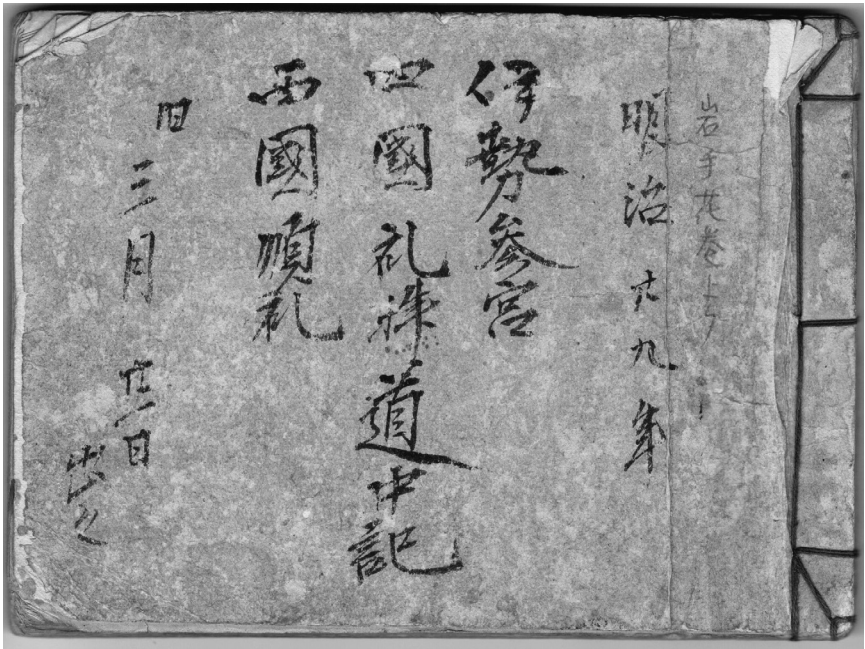 岩手花巻より
明治廿九年
伊勢参宮
四國礼拝道中記
西國順礼
旧三月廿一日
出立